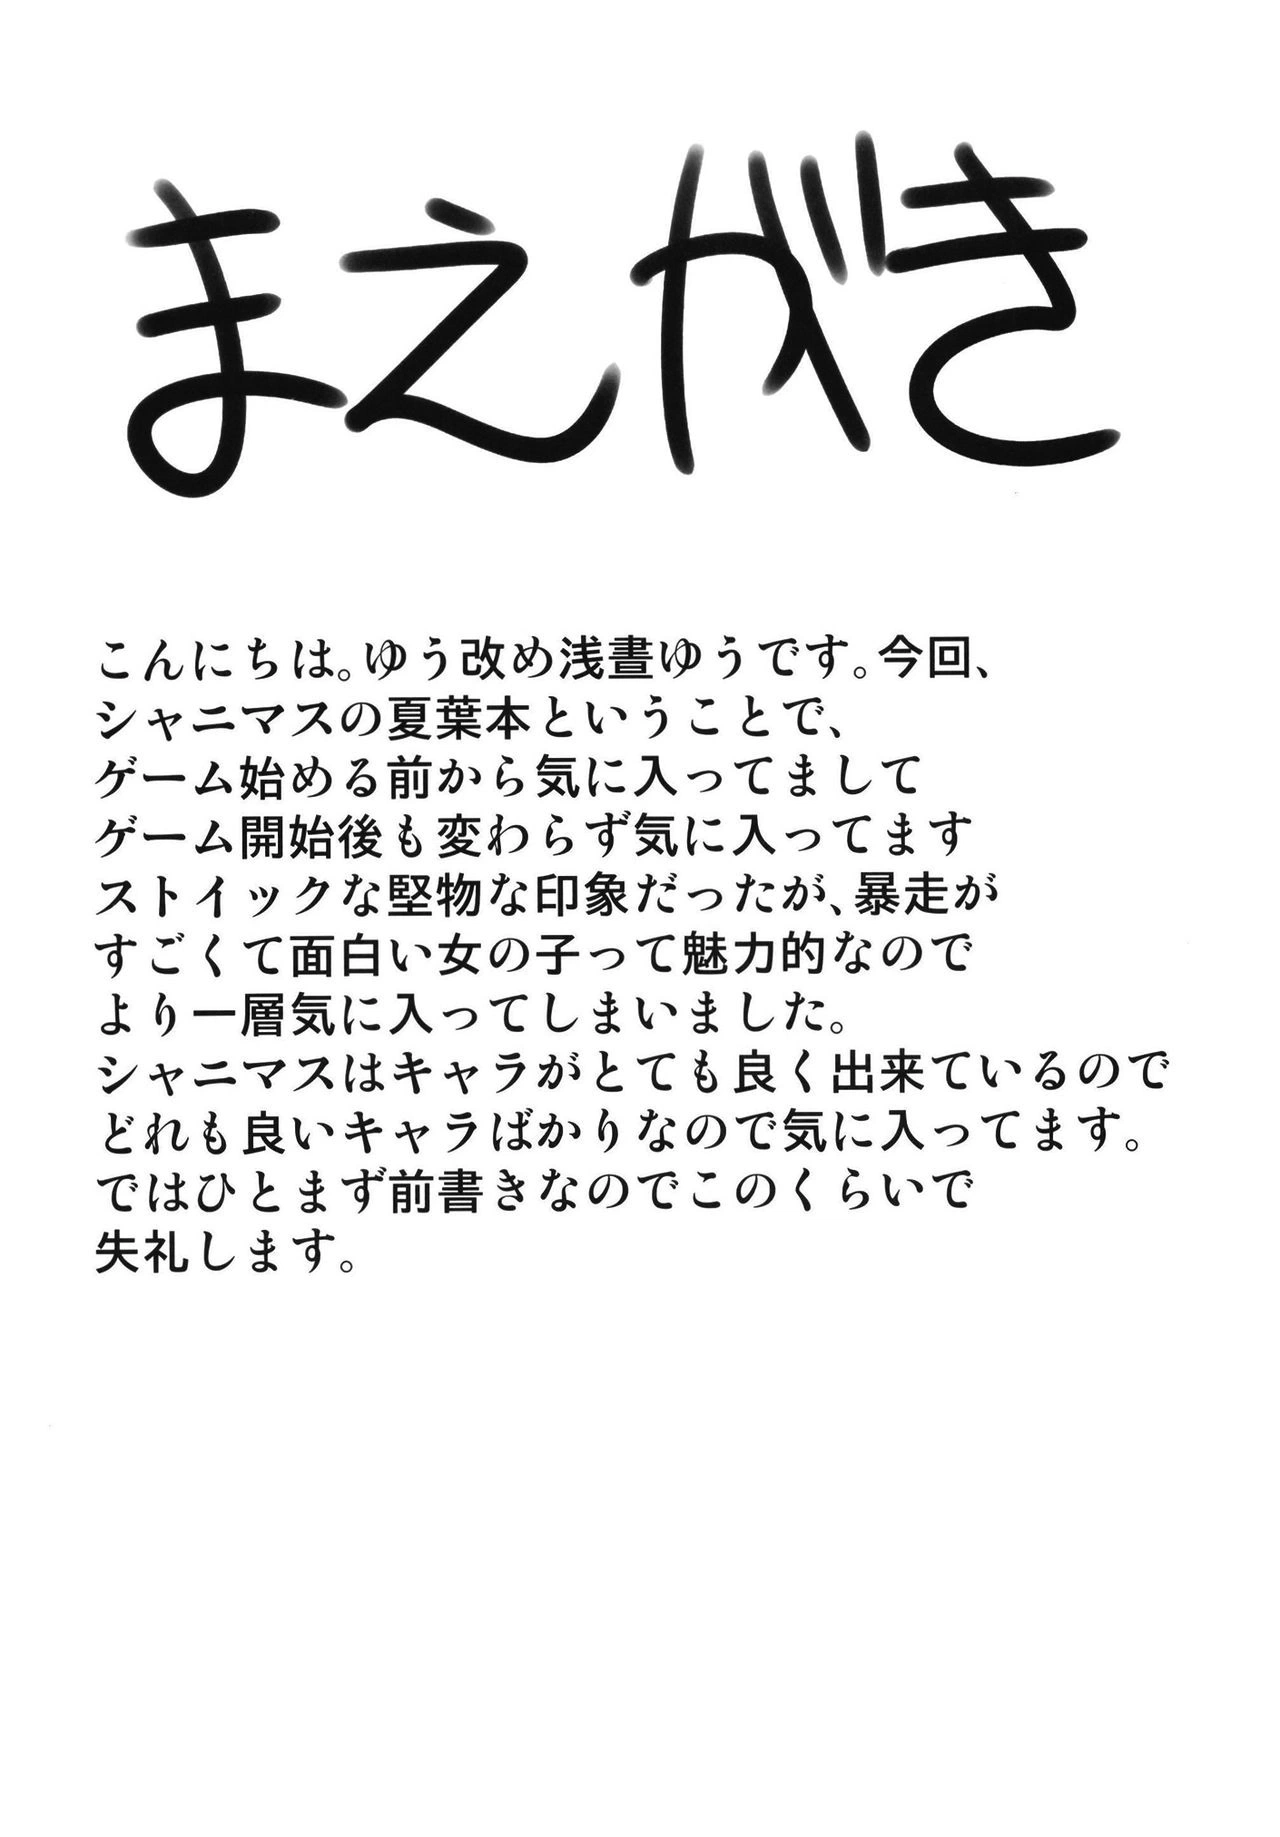 まえがき
こんにちは。ゆう改め浅晝ゆうです。今回、
シャニマスの夏葉本ということで、
ゲーム始める前から気に入ってまして
ゲーム開始後も変わらず気に入ってます
ストイックな堅物な印象だったが、暴走が
すごくて面白い女の子って魅力的なので
より一層気に入ってしまいました。
シャニマスはキャラがとても良く出来ているので
どれも良いキャラばかりなので気に入ってます。
ではひとまず前書きなのでこのくらいで
失礼します。